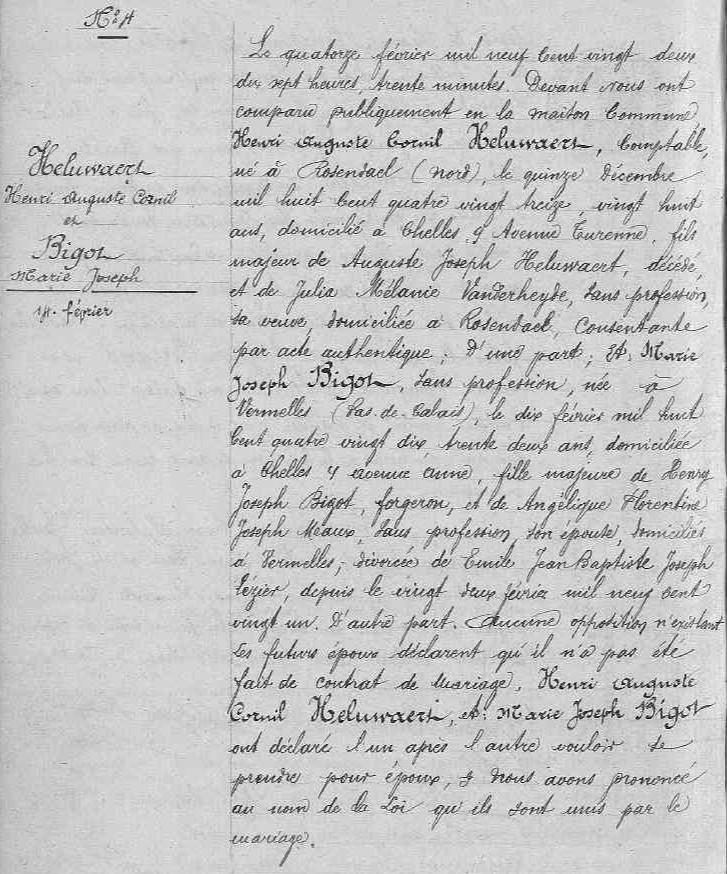 N° 4
Heluwaert
Henri Auguste Cornil
et
Bigot
Marie Joseph
14. février
Le quatorze février mil neuf cent vingt deux
dix sept heures, trente minutes. Devant nous ont
comparu publiquement en la maison commune,
Henri Auguste Cornil Heluwaert, comptable,
né à Rosendael (Nord), le quinze décembre
mil huit cent quatre vingt treize, vingt huit
ans, domicilié à Chelles, 9 Avenue Turenne, fils
majeur de Auguste Joseph Heluwaert, décédé,
et de Julia Mélanie Vanderheyde, sans profession,
sa veuve, domiciliée à Rosendael, consentante
par acte authentique ; D'une part ; Et, Marie
Joseph Bigot, sans profession, née à
Vermelles (Pas-de-Calais), le dix février mil huit
cent quatre vingt dix, trente deux ans, domiciliée
à Chelles 4 avenue Anne, fille majeure de Henry
Joseph Bigot, forgeron, et de Angélique Florentine
Joseph Meaux, sans profession, son épouse, domiciliés
à Vermelles ; divorcée de Emile Jean Baptiste Joseph
Lezier, depuis le vingt deux février mil neuf cent
vingt un. D'autre part. Aucune opposition n'existant
Les futurs époux déclarent qu'il n'a pas été
fait de contrat de mariage. Henri Auguste
Cornil Heluwaert, et Marie Joseph Bigot
ont déclaré l'un après l'autre vouloir se
prendre pour époux, & nous avons prononcé
au nom de la Loi qu'ils sont unis par le
mariage.